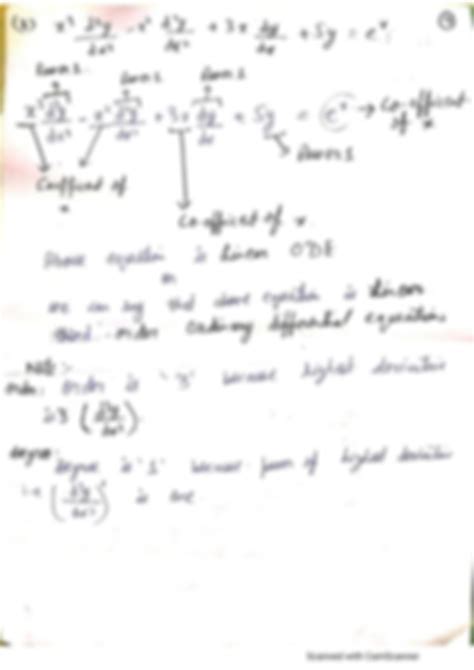 (3) x³ d³y/dx³ - x² d²y/dx² + 3x dy/dx + 5y = eˣ
Power 1 Power 1 Power 1
x³ d³y/dx³ - x² d²y/dx² + 3x dy/dx + 5y = eˣ → Co-efficient of x
Power 1
Coefficient of x
Co-efficient of x
Above equation is Linear ODE
or
we can say that above equation is Linear
third order Ordinary differential equation
Note :-
Order: order is '3' because highest derivative
is 3 (d³y/dx³)
Degree: Degree is '1' because power of highest derivative
i.e (d³y/dx³) is one
Scanned with CamScanner